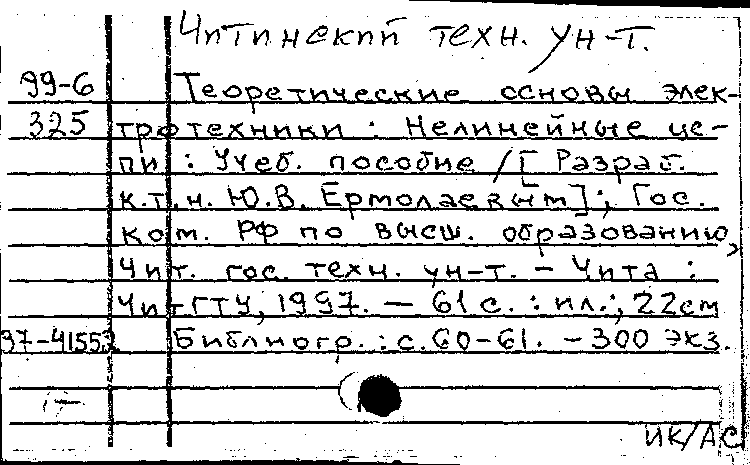 Читинский техн. ун-т.
99-6 Теоретические основы элек-
325 тротехники : Нелинейные це-
пи : Учеб. пособие / [ Разраб.
к.т.н. Ю.В. Ермолаевым ] ; Гос.
ком. РФ по высш. образованию,
Чит. гос. техн. ун-т. - Чита :
ЧитГТУ, 1997. — 61 с. : ил. ; 22 см
97-41553 Библиогр. : с. 60-61. - 300 экз.
ИК/АС